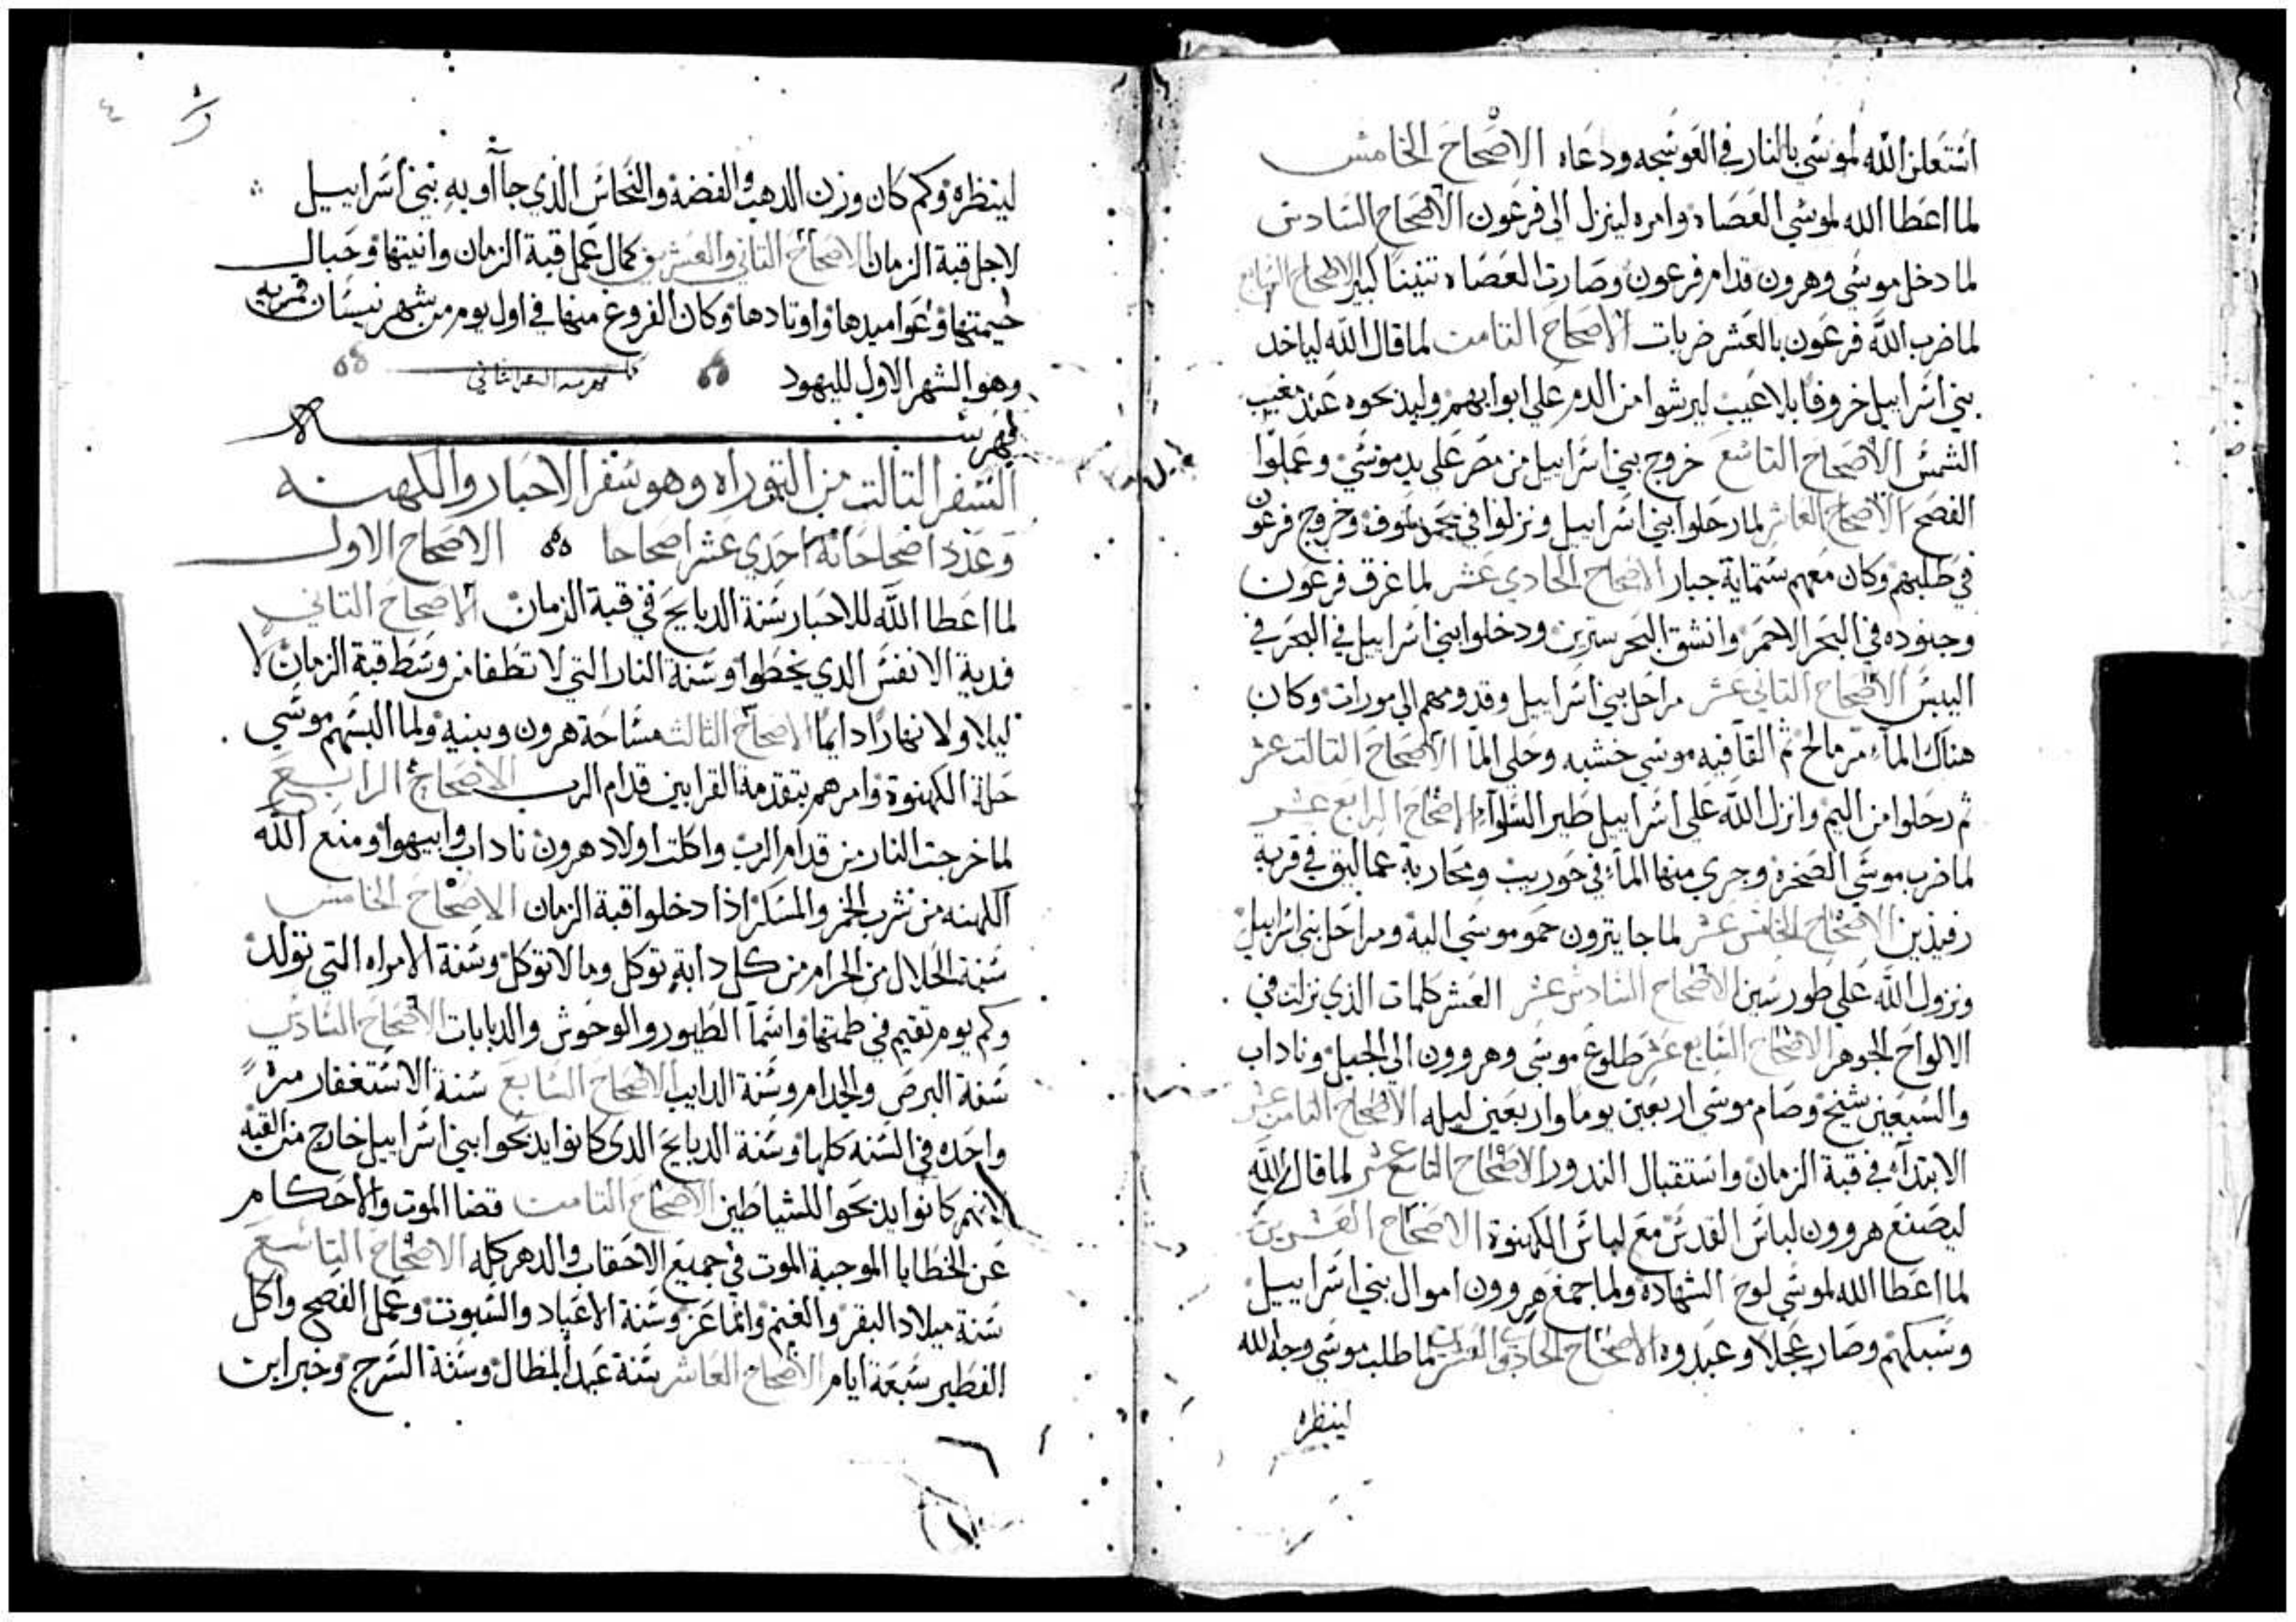 استعلن الله لموسي بالنار في العوسجه ودعاه الاصحاح الخامس
لما اعطا الله لموسي العصاه وامره لينزل الي فرعون الاصحاح السادس
لما دخل موسي وهرون قدام فرعون وصارت العصاه تنينا كبير الاصحاح السابع
لما ضرب الله فرعون بالعشر ضربات الاصحاح التامن لما قال الله لياخد
بني اسراييل خروفا بلا عيب ليرشوا من الدم علي ابوابهم وليذبحوه عند مغيب
الشمس الاصحاح التاسع خروج بني اسراييل من مصر علي يد موسي وعملوا
الفصح الاصحاح العاشر لما رحلوا بني اسراييل ونزلوا في بحر سوف وخروج فرعون
في طلبهم وكان معهم ستماية جبار الاصحاح الحادي عشر لما غرق فرعون
وجنوده في البحر الاحمر وانشق البحر ودخلوا بني اسراييل في البحر في
اليبس الاصحاح التاني عشر مراحل بني اسراييل وقدومهم الي مورات وكان
هناك الماء مر مالح ثم القا فيه موسي خشبه وحلي الما الاصحاح التالت عشر
ثم رحلوا من اليم وانزل الله علي اسراييل طير السلوا الاصحاح الرابع عشر
لما ضرب موسي الصخره وجري منها الماء في حوريب ومحاربة عماليق في قرية
رفيذين الاصحاح الخامس عشر لما جا يترون حمو موسي اليه ومراحل بني اسراييل
ونزول الله علي طور سين الاصحاح السادس عشر العشر كلمات الذي نزلت في
الالواح الجوهر الاصحاح السابع عشر طلوع موسي وهرون الي الجبل وناداب
والسبعين شيخ وصام موسي اربعين يوما واربعين ليله الاصحاح التامن عشر
الابتداء في قبة الزمان واستقبال الندور الاصحاح التاسع عشر لما قال الله
ليصنع هرون لباس القدس مع لباس الكهنوة الاصحاح العشرين
لما اعطا الله لموسي لوح الشهادة ولما جمع هرون اموال بني اسراييل
وسبكهم وصار عجلا وعبدوه الاصحاح الحادي والعشرين لما طلب موسي وجه الله
لينظره
لينظره وكم كان وزن الدهب والفضة والنحاس الذي جاأو به بني اسراييل
لاجل قبة الزمان الاصحاح التاني والعشرين كمال عمل قبة الزمان وانيتها وحبال
خيمتها وعواميدها واوتادها وكان الفروغ منها في اول يوم من شهر نيسان قمريه
وهو الشهر الاول لليهود
فهرست
السفر التالت من التوراه وهو سفر الاحبار والكهنه
وعدد اصحاحاته احدي عشر اصحاحا الاصحاح الاول
لما اعطا الله للاحبار سنة الدبايح في قبة الزمان الاصحاح التاني
فدية الانفس الدي يخطوا وسنة النار التي لا تطفا من وسط قبة الزمان لا
ليلا ولا نهارا دايما الاصحاح الثالث مساحة هرون وبنيه ولما البسهم موسي
حلة الكهنوة وامرهم بتقدمة القرابين قدام الرب الاصحاح الرابع
لما خرجت النار من قدام الرب واكلت اولاد هرون ناداب وابيهوا ومنع الله
الكهنه من شرب الخمر والمسكر اذا دخلوا قبة الزمان الاصحاح الخامس
سنة الحلال من الحرام من كل دابة توكل وما لا توكل وسنة الامراه التي تولد
وكم يوم تقيم في طمتها واسما الطيور والوحوش والدبابات الاصحاح السادس
سنة البرص والجدام وسنة الدايب الاصحاح السابع سنة الاستغفار مرة
واحده في السنه كلها وسنة الدبايح الدي كانوا يدبحوا بني اسراييل خارج من القبه
لانهم كانوا يدبحوا للشياطين الاصحاح التامن قضا الموت والاحكام
عن الخطايا الموجبة الموت في جميع الاحقاب والدهر كله الاصحاح التاسع
سنة ميلاد البقر والغنم والماعز وسنة الاعياد والسبوت وعمل الفصح واكل
الفطير سبعة ايام الاصحاح العاشر سنة عيد المظال وسنة السرج وخبر ابن